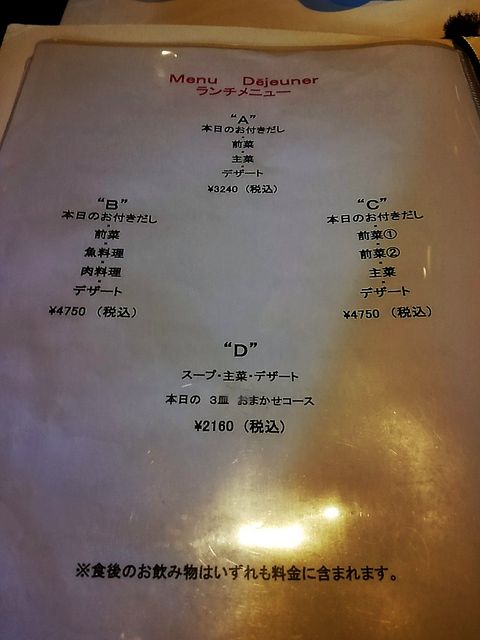 Menu Déjeuner
ランチメニュー
“A”
本日のお付きだし
・
前菜
・
主菜
・
デザート
¥3240 (税込)
“B”
本日のお付きだし
・
前菜
・
魚料理
・
肉料理
・
デザート
¥4750 (税込)
“C”
本日のお付きだし
・
前菜①
・
前菜②
・
主菜
・
デザート
¥4750 (税込)
“D”
スープ・主菜・デザート
本日の 3皿 おまかせコース
¥2160 (税込)
※食後のお飲み物はいずれも料金に含まれます。